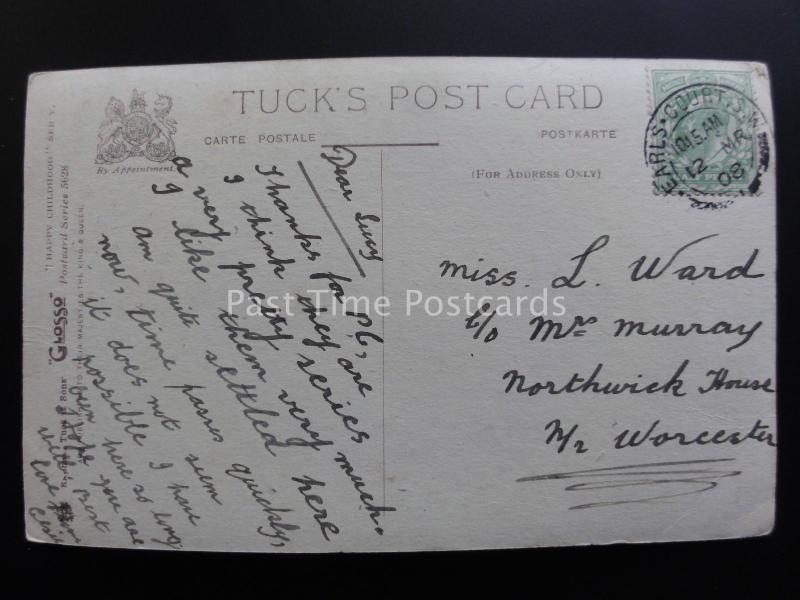 TUCK'S POST CARD
CARTE POSTALE
POSTKARTE
By Appointment.
(FOR ADDRESS ONLY)
EARLS COURT. S.W.
10.15 AM
12 MR
08
"HAPPY CHILDHOOD" SER
Postcard Series 5628
"GLOSSO"
THEIR MAJESTIES THE KING & QUEEN
Dear Lucy
Thanks for P.C, 
I think they are
a very pretty series
I like them very much.
am quite settled here
now, time passes quickly,
it does not seem
possible I have
been here so long
Hope you are
well, Best
love from
miss. L. Ward
c/o Mrs Murray
Northwick House
N/r Worcester
Past Time Postcards